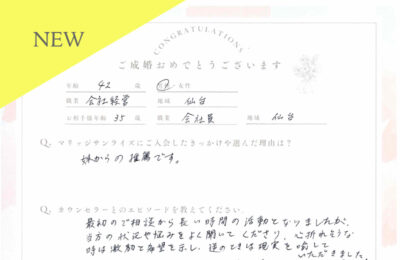 NEW
CONGRATULATIONS
ご成婚おめでとうございます
年齢 42 歳 男性・女性
職業 会社経営 地域 仙台
お相手様年齢 35 歳
職業 会社員 地域 仙台
Q. マリッジサンライズにご入会したきっかけや選んだ理由は?
妹からの推薦です。
Q. カウンセラーとのエピソードを教えてください。
最初のご相談から長い時間の活動となりましたが、
当方の状況や悩みをよく聞いてくださり、心折れそうな
時は激励と希望を示し、逆のときは現実を喩して
いただきました。